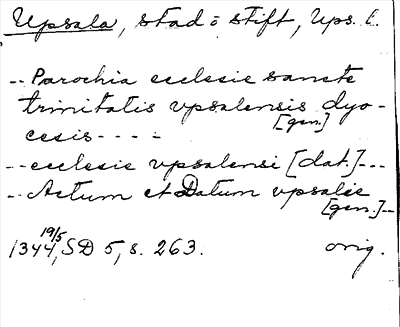 Upsala, stad o stift, Ups. l.
-- Parochia ecclesie sancte
trinitatis vpsalensis dyo-
[gen.]
cesis - - - -
-- ecclesie vpsalensi [dat.] - - -
-- Actum et Datum vpsalie
[gen.] --
19/5
1344, SD 5, s. 263. orig.